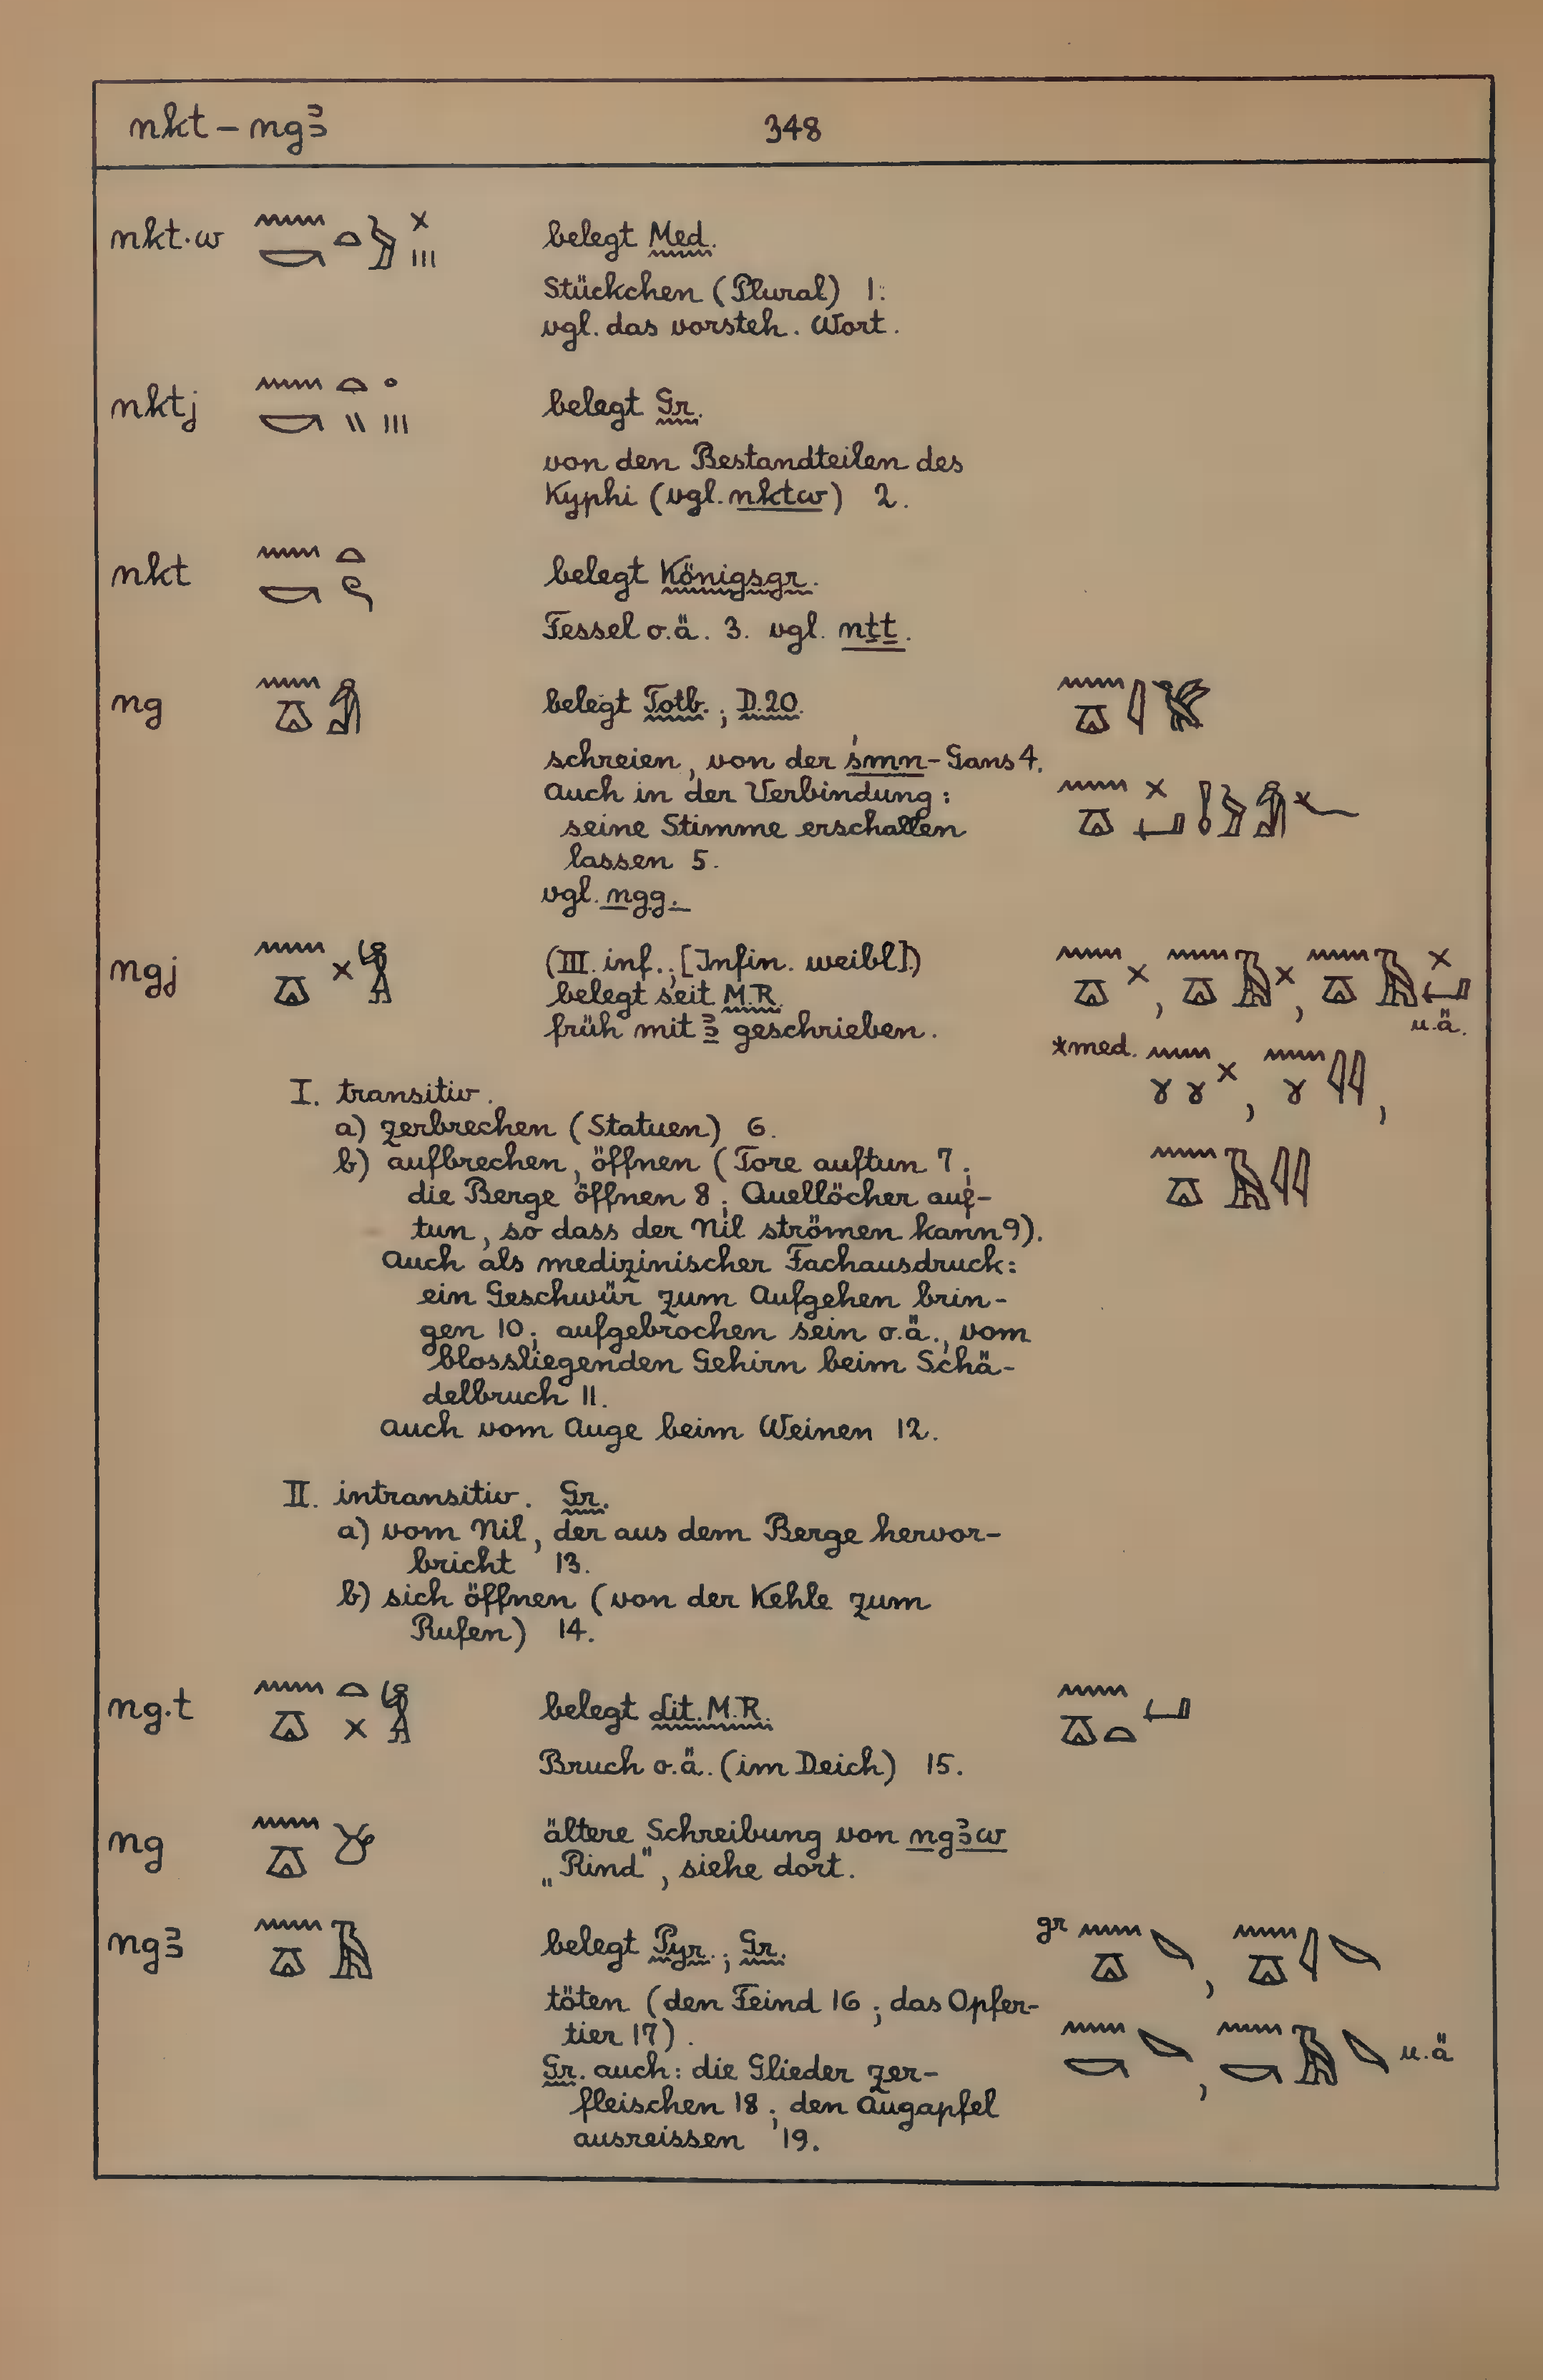 nkt – ngꜣ 348
nkt.w belegt Med.
Stückchen (Plural) 1:
vgl. das vorsteh. Wort.
nktj belegt Gr.
von den Bestandteilen des
Kyphi (vgl. nktw) 2.
nkt belegt Königsgr.
Fessel o.ä. 3. vgl. nṯṯ.
ng belegt Totb.; D.20.
schreien, von der śmn-Gans 4.
Auch in der Verbindung:
seine Stimme erschallen
lassen 5.
vgl. ngg.
ngj (III. inf.; [Infin. weibl].)
belegt seit M.R.
früh mit ꜣ geschrieben.
u.ä.
*med.
I. transitiv.
a) zerbrechen (Statuen) 6.
b) aufbrechen, öffnen (Tore auftun 7;
die Berge öffnen 8; Quellöcher auf-
tun, so dass der Nil strömen kann 9).
Auch als medizinischer Fachausdruck:
ein Geschwür zum Aufgehen brin-
gen 10; aufgebrochen sein o.ä., vom
blossliegenden Gehirn beim Schä-
delbruch 11.
Auch vom Auge beim Weinen 12.
II. intransitiv. Gr.
a) vom Nil, der aus dem Berge hervor-
bricht 13.
b) sich öffnen (von der Kehle zum
Rufen) 14.
ng.t belegt Lit. M.R.
Bruch o.ä. (im Deich) 15.
ng ältere Schreibung von ngꜣw
„Rind", siehe dort.
ngꜣ belegt Pyr.; Gr. gr
töten (den Feind 16; das Opfer-
tier 17).
u.ä
Gr. auch: die Glieder zer-
fleischen 18; den Augapfel
ausreissen 19.